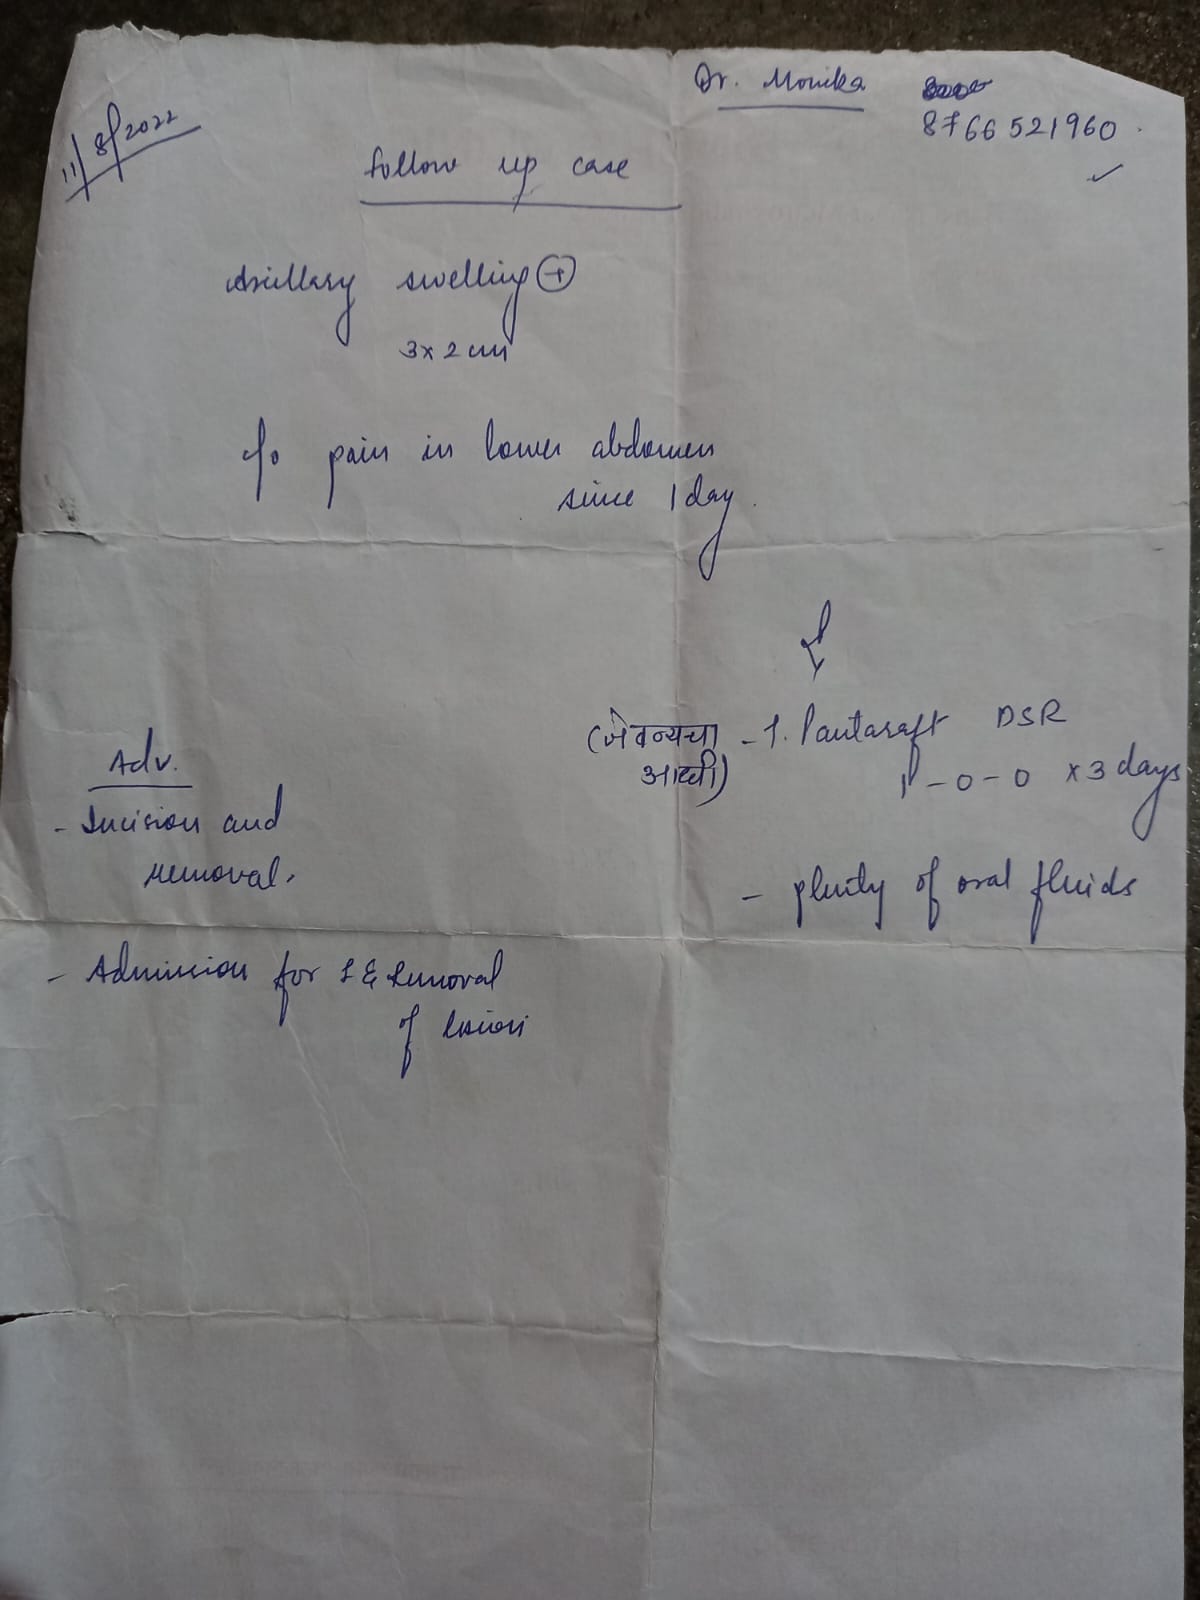 11/8/2022
Dr. Monika
8766521960
follow up case
Axillary swelling (+)
3x2 cm
c/o pain in lower abdomen
since 1 day.
Adv.
- Incision and
removal.
- Admission for I & removal
of lesion
(जेवन्यचा
आधी)
- T. Pantaraft DSR
1-0-0 x 3 days
- plenty of oral fluids